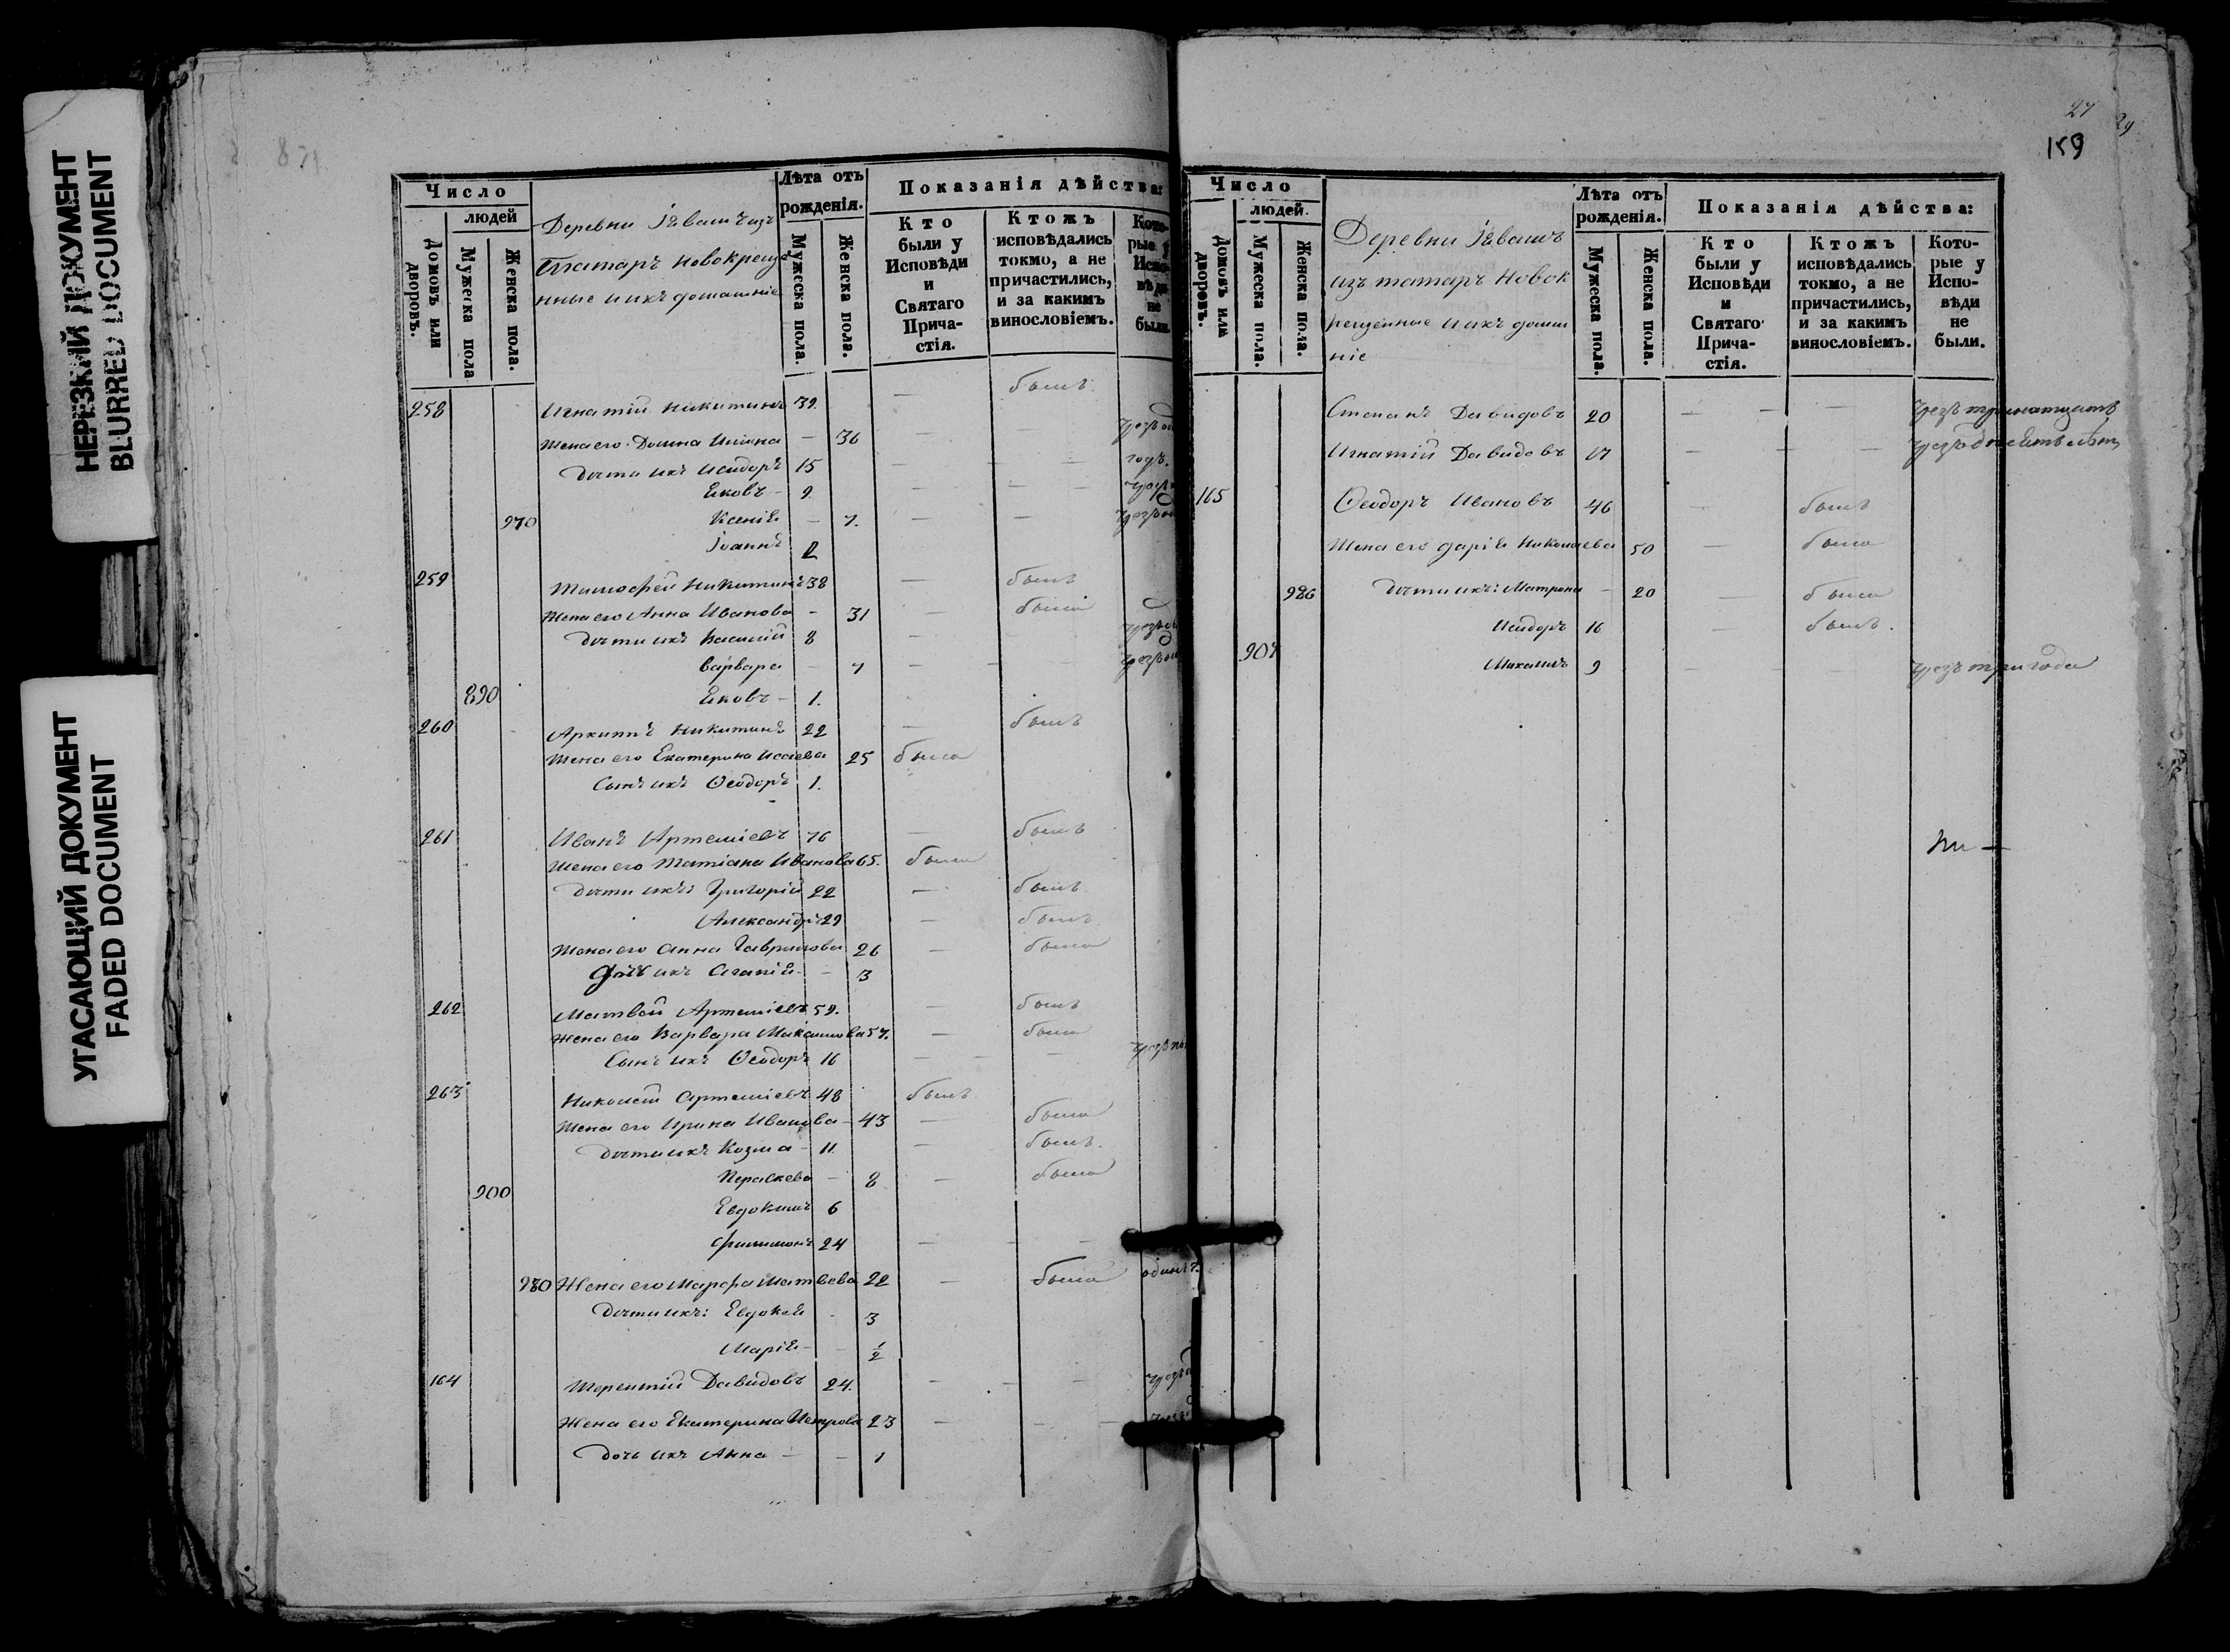 НЕРЕЗКИЙ ДОКУМЕНТ
BLURRED DOCUMENT
УГАСАЮЩИЙ ДОКУМЕНТ
FADED DOCUMENT
Число
людей
Домовъ или дворовъ.
Мужеска пола
Женска пола.
Деревни Івашъ изъ
татаръ новокреще
нные и ихъ домашніе
Лѣта отъ рожденія.
Мужеска пола.
Женска пола.
Показанія дѣйства:
Кто были у Исповѣди и Святаго Прича-стія.
Ктожъ исповѣдались токмо, а не причастились, и за какимъ винословіемъ.
Кото-рые у Испо-вѣди не были.
258 Игнатій Никитинъ 39. — былъ
Жена его Домна — 36 — —
Дѣти ихъ Исидоръ 15 — — годъ.
Яковъ — 9. — —
970 Ксенія — 7. — —
Іоаннъ 2
259 Тимофей Никитинъ 38 — былъ
Жена его Анна Иванова — 31 — была
Дѣти ихъ Василій 8 —
Варвара — 7 — —
890 Яковъ — 1.
260 Архипъ Никитинъ 22 — былъ
Жена его Екатерина Исаева 25 была
Сынъ ихъ Ѳеодоръ 1.
261 Иванъ Артеміевъ 76 — былъ
Жена его Татіана Иванова 65. была
Дѣти ихъ: Григорій 22 — былъ
Александръ 29 — былъ
Жена его Анна Гаврилова 26 — была
Дочь ихъ Агапія — — 3
262 Матвей Артеміевъ 59. — былъ
Жена его Варвара Максимова 57. — была
Сынъ ихъ Ѳеодоръ 16 — — —
263 Николай Артеміевъ 48 былъ
Жена его Ирина Иванова — 43 — была
Дѣти ихъ Козма — 11. — былъ.
Параскева — 8 — была
900 Евдокимъ 6
Филимонъ 24 — — —
980 Жена его Марфа Матвеева 22 — была одинъ.
Дѣти ихъ: Евдокія — 3
Марія — — 1/2
164 Терентій Давидовъ 24. — — —
Жена его Екатерина Петрова 23 — — —
Дочь ихъ Анна — — 1
27
29
159
Число
людей.
Домовъ или дворовъ.
Мужеска пола.
Женска пола.
Деревни Івашъ
изъ татаръ новок
рещенные и ихъ домаш
ніе
Лѣта отъ рожденія.
Мужеска пола.
Женска пола.
Показанія дѣйства:
Кто были у Исповѣди и Святаго Прича-стія.
Ктожъ исповѣдались токмо, а не причастились, и за какимъ винословіемъ.
Кото-рые у Испо-вѣди не были.
Степанъ Давидовъ 20 — — —
Игнатій Давидовъ 17 — — —
165 Ѳеодоръ Ивановъ 46 — былъ
Жена его Дарія Николаева 50 — была
986 Дѣти ихъ: Матрона — 20 — была
Исидоръ 16 — былъ.
907 Михаилъ 9 — — — чрезъ три года